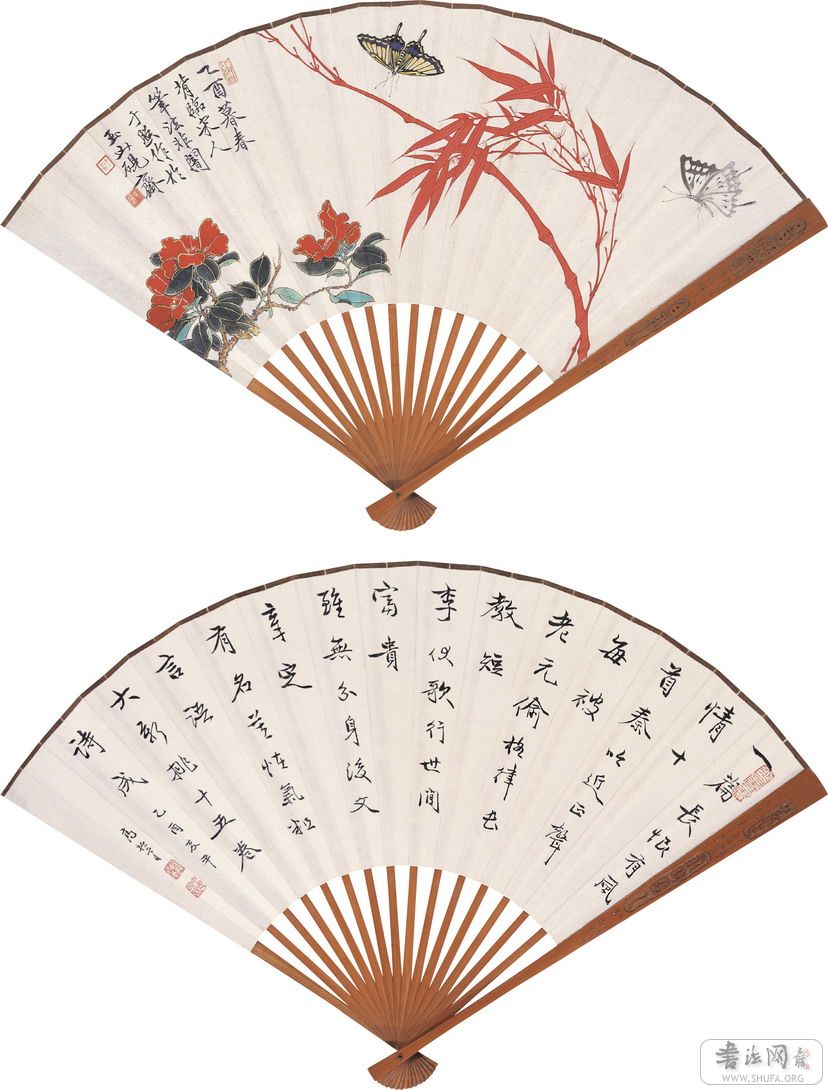 乙酉暮春
背臨宋人
筆法非闇
于照作於
玉山硯齋
一篇長恨有風
情十
首秦吟近正聲
每被
老元偷格律苦
教短
李伏歌行世間
富貴
雖無分身後文
章定
有名莫怪氣粗
言語
大新排十五卷
詩成
乙酉夏
書法网
WWW.SHUFA.ORG